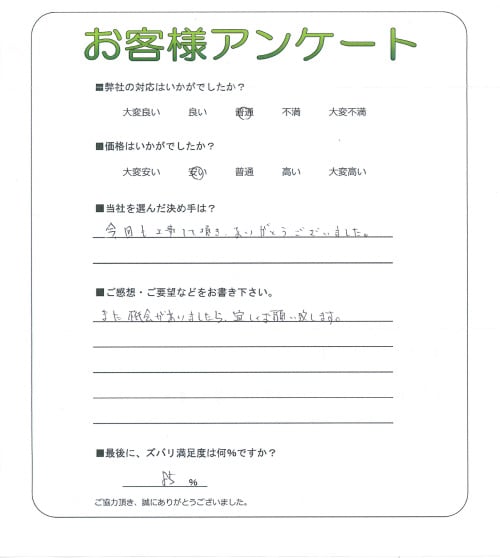 お客様アンケート
■弊社の対応はいかがでしたか？
大変良い 良い 普通 不満 大変不満
■価格はいかがでしたか？
大変安い 安い 普通 高い 大変高い
■当社を選んだ決め手は？
今回も工事して頂き、ありがとうございました。
■ご感想・ご要望などをお書き下さい。
また機会がありましたら、宜しくお願い致します。
■最後に、ズバリ満足度は何％ですか？
85 ％
ご協力頂き、誠にありがとうございました。